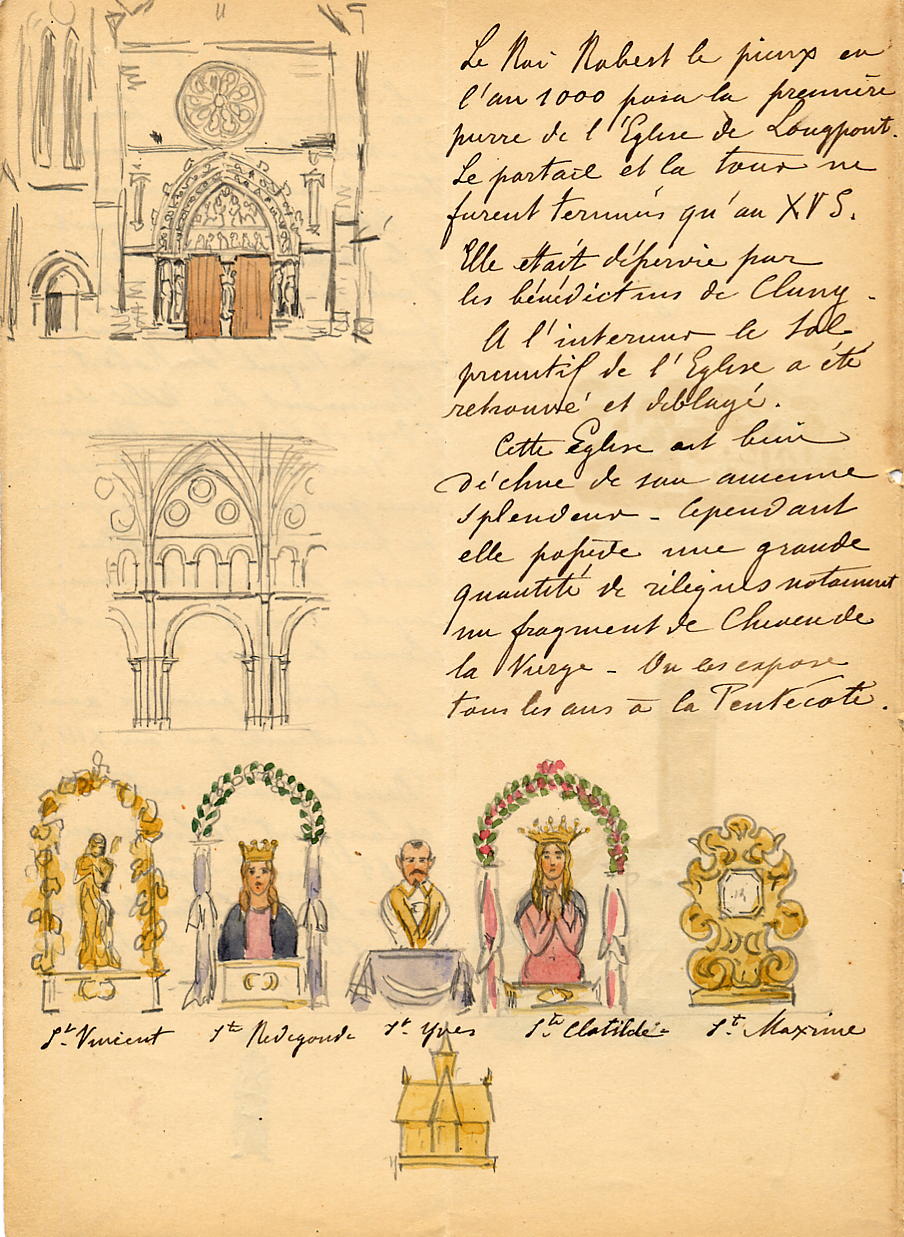 Le Roi Robert le pieux en
l'an 1000 posa la première
pierre de l'Eglise de Longpont.
Le portail et la tour ne
furent terminés qu'au XV S.
Elle était désservie par
les bénédictins de Cluny.
A l'interieur le sol
primitif de l'Eglise a été
retrouvé et déblayé.
Cette Eglise est bien
déchue de son ancienne
splendeur - Cependant
elle possède une grande
quantité de réliques notamment
un fragment de Cheveu de
la Vierge - On les expose
tous les ans à la Pentecôte.
St. Vincent Ste Redegonde St. Yves Ste Clotilde St. Maxime